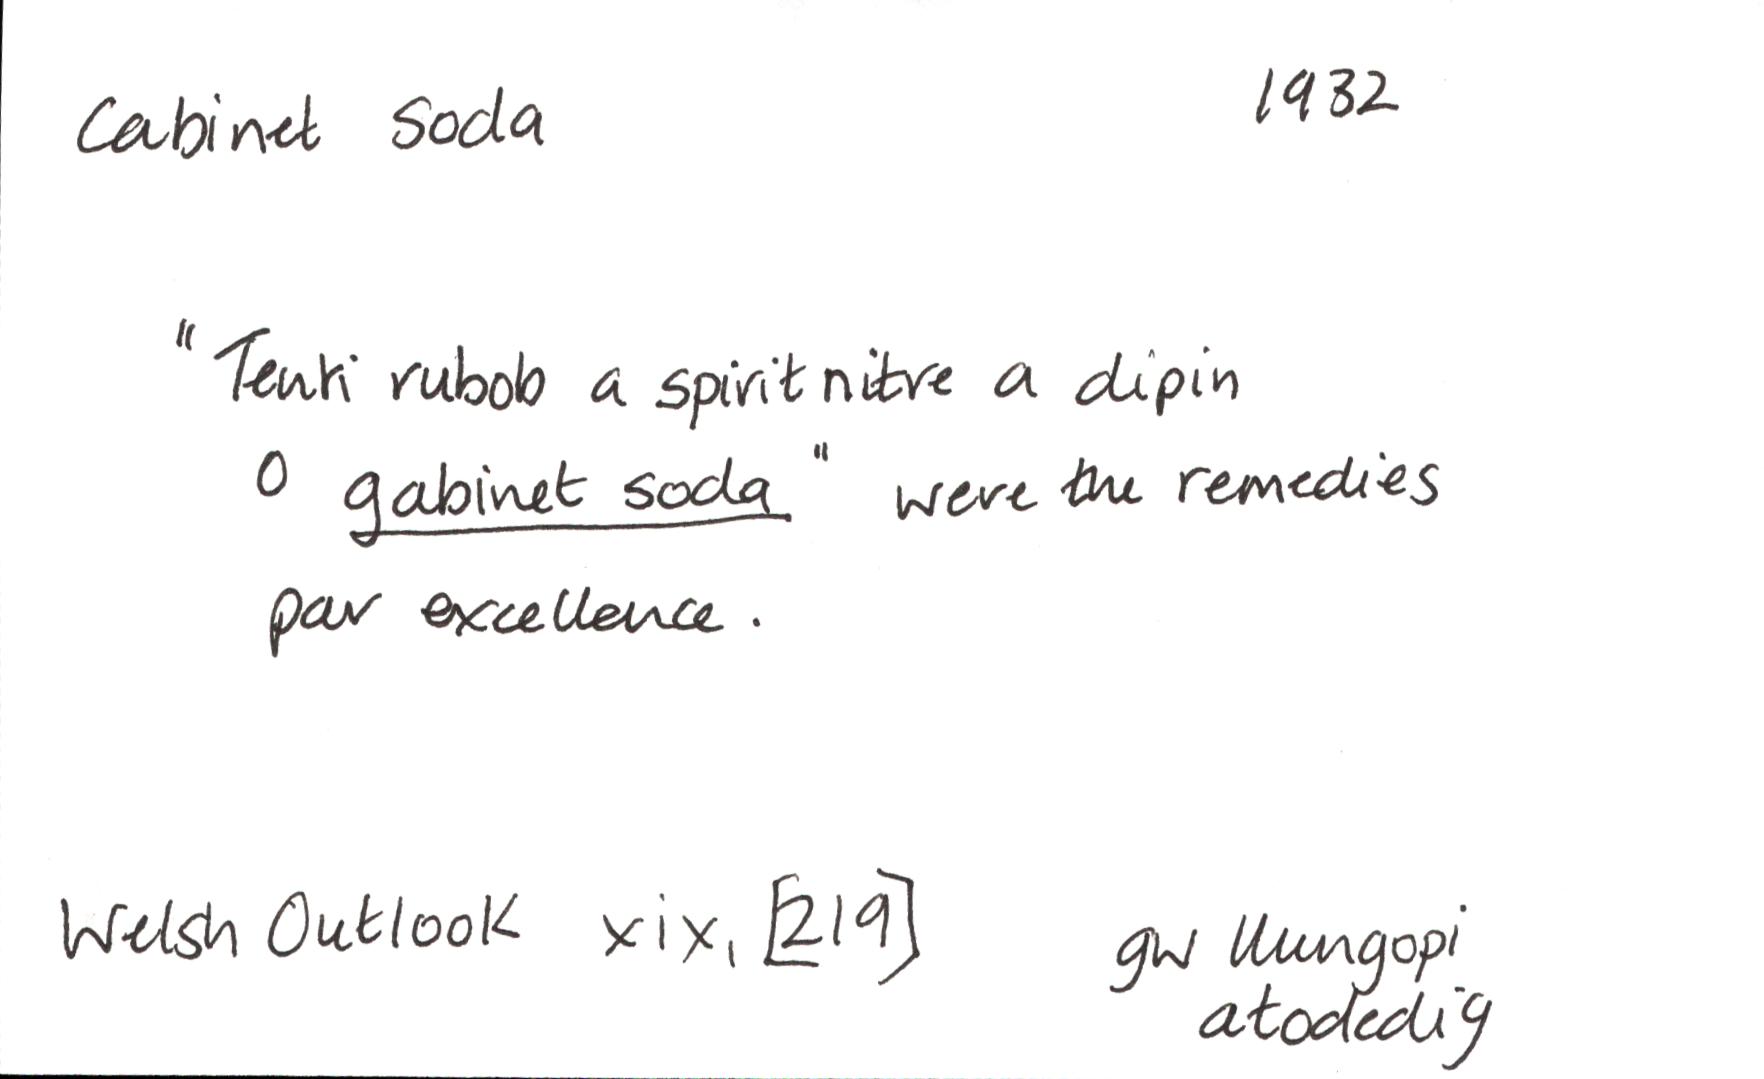 Cabinet soda 1932
"Tenti rubob a spirit nitre a dipin
o gabinet soda" were the remedies
par excellence.
Welsh Outlook xix, [219] gw llungopi
atodedig